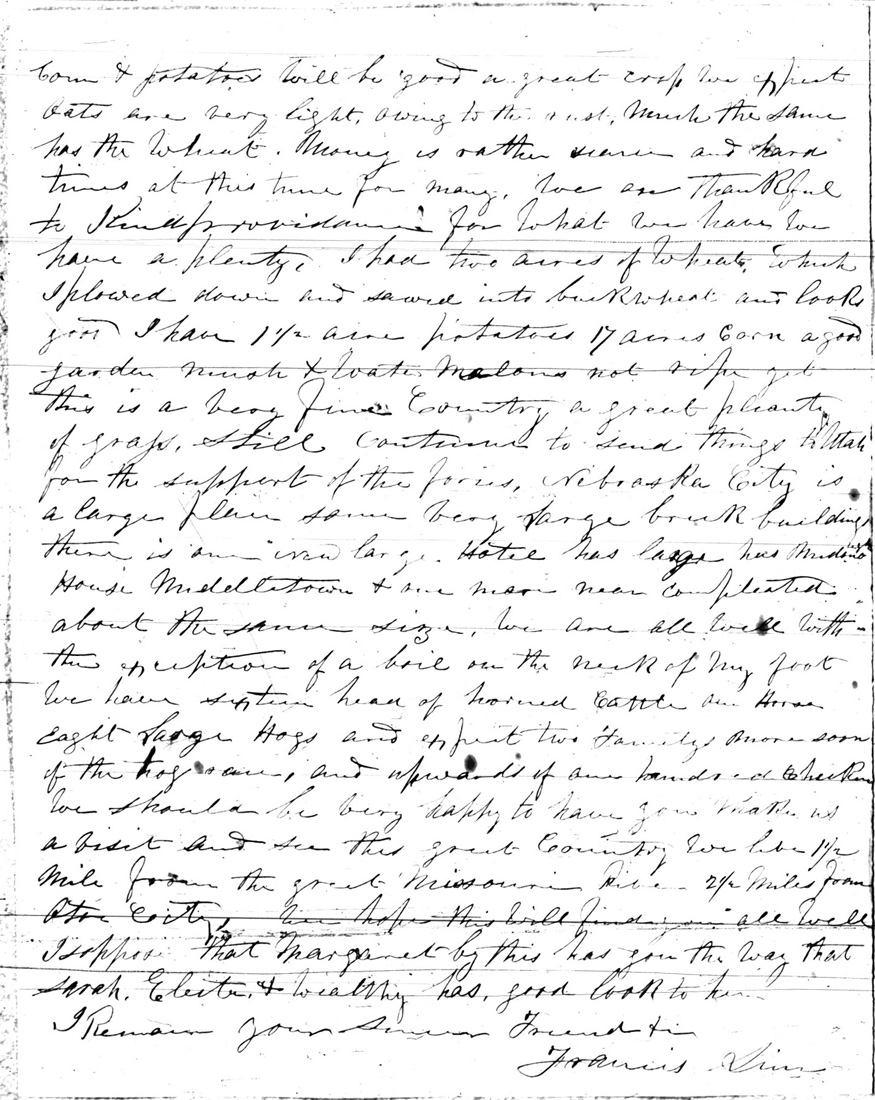 Corn & potatoes will be good a great crop we expect
Oats are very light, owing to the rust, Much the same
has the Wheat. Money is rather scarce and hard
times at this time for many, We are thankful
to Kind providance for What we have We
have a plenty, I had two acres of Wheat, Which
I plowed down and sowed into buckwheat and looks
good I have 1 1/2 acre potatoes 17 acres Corn a good
garden mush & Water Malons not ripe yet
this is a very fine Country a great pleanty
of grass, Still continue to send things to Utah
for the support of the forces, Nebraska City is
a large place some very large brick buildings
there is one large Hotel has large has
House Middletown & one more near compleated
about the same size, We are all Well with
the exception of a boil on the neck of My foot
We have sixteen head of horned Cattle one Horse
Eaght Large Hogs and expect two Familys more soon
of the hog race, and upwards of one hundred Chicken
We should be very happy to have you make us
a visit and see this great Country We live 1 1/2
Mile from the great Missouri River 2 1/2 Miles from
Otoe City, We hope this Will find you all Well
I soppose that Margaret by this has gon the Way that
Sarah, & Wealthy has, good look to her
I Remain your Sincere Friend &c
Francis